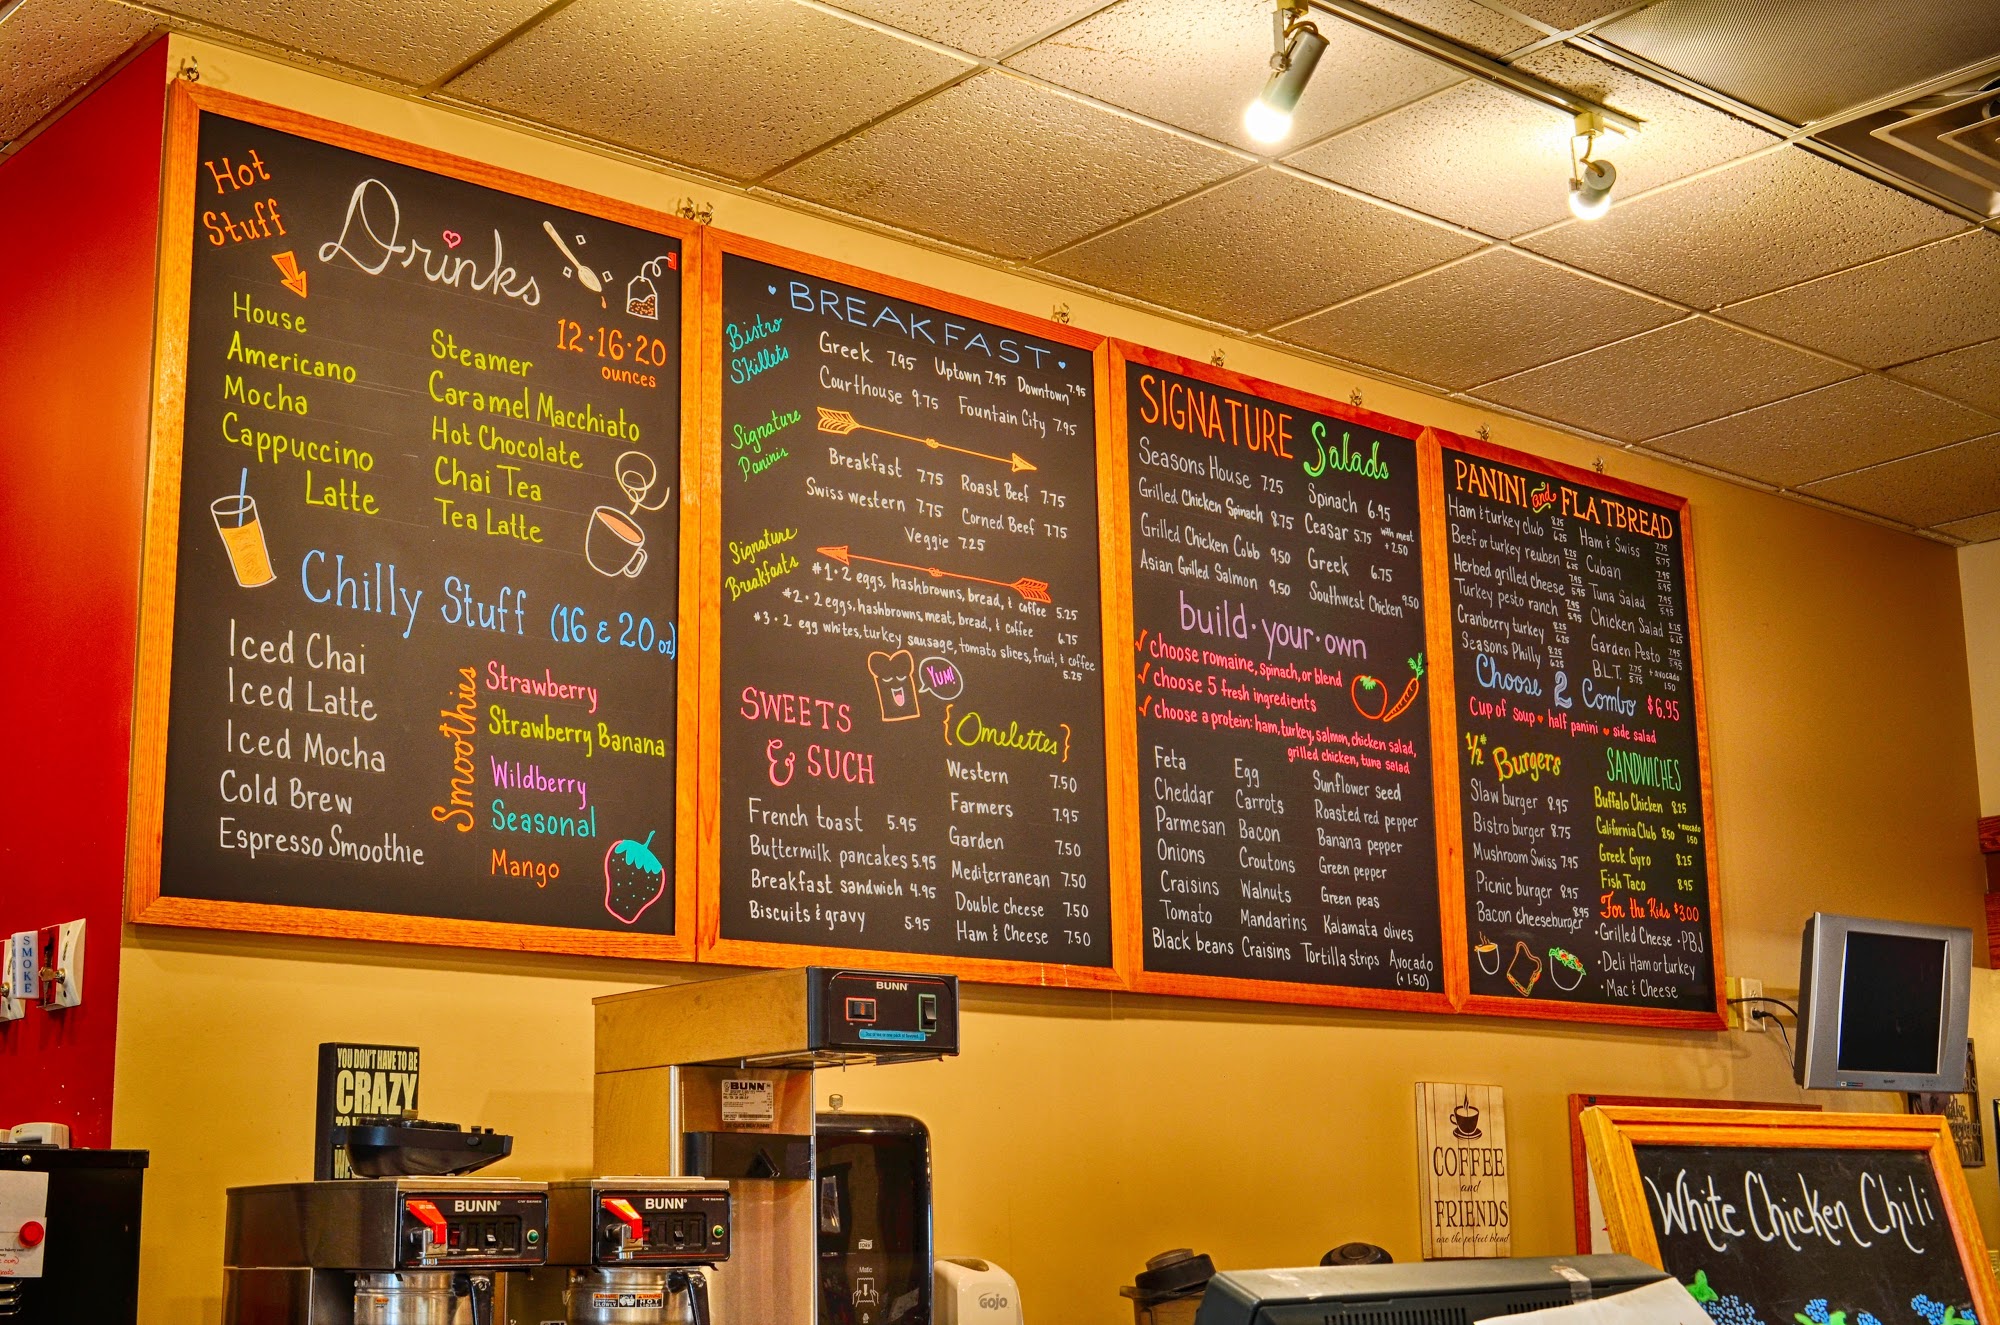 Hot
Stuff
Drinks
12·16·20
ounces
House
Americano
Mocha
Cappuccino
Latte
Steamer
Caramel Macchiato
Hot Chocolate
Chai Tea
Tea Latte
Chilly Stuff (16 & 20 oz)
Iced Chai
Iced Latte
Iced Mocha
Cold Brew
Espresso Smoothie
Smoothies
Strawberry
Strawberry Banana
Wildberry
Seasonal
Mango
BREAKFAST
Bistro
Skillets
Greek 7.95 Uptown 7.95 Downtown 7.95
Courthouse 9.75 Fountain City 7.95
Signature
Paninis
Breakfast 7.75 Roast Beef 7.75
Swiss western 7.75 Corned Beef 7.75
Veggie 7.25
Signature
Breakfasts
#1 · 2 eggs, hashbrowns, bread, & coffee 5.25
#2 · 2 eggs, hashbrowns, meat, bread, & coffee 6.75
#3 · 2 egg whites, turkey sausage, tomato slices, fruit, & coffee
5.25
YUM!
SWEETS
& SUCH
French toast 5.95
Buttermilk pancakes 5.95
Breakfast sandwich 4.95
Biscuits & gravy 5.95
{Omelettes}
Western 7.50
Farmers 7.95
Garden 7.50
Mediterranean 7.50
Double cheese 7.50
Ham & Cheese 7.50
SIGNATURE Salads
Seasons House 7.25
Grilled Chicken Spinach 8.75
Grilled Chicken Cobb 9.50
Asian Grilled Salmon 9.50
Spinach 6.95
Ceasar 5.75 with meat +2.50
Greek 6.75
Southwest Chicken 9.50
build·your·own
✓ choose romaine, spinach, or blend
✓ choose 5 fresh ingredients
✓ choose a protein: ham, turkey, salmon, chicken salad,
grilled chicken, tuna salad
Feta
Cheddar
Parmesan
Onions
Craisins
Tomato
Black beans
Egg
Carrots
Bacon
Croutons
Walnuts
Mandarins
Craisins
Sunflower seed
Roasted red pepper
Banana pepper
Green pepper
Green peas
Kalamata olives
Tortilla strips
Avocado
(+1.50)
PANINI and FLATBREAD
Ham & turkey club 8.25 6.25
Beef or turkey reuben 8.25 6.25
Herbed grilled cheese 7.95 5.95
Turkey pesto ranch 7.95 5.95
Cranberry turkey 8.25 6.25
Seasons Philly 8.25 6.25
Ham & Swiss 7.75 5.75
Cuban 7.95 5.95
Tuna Salad 7.95 5.95
Chicken Salad 8.25 6.25
Garden Pesto 7.95 5.95
B.L.T. 7.75 5.75 + avocado 1.50
Choose 2 Combo $6.95
Cup of soup ♥ half panini ♥ side salad
1/2# Burgers
Slaw burger 8.95
Bistro burger 8.75
Mushroom Swiss 7.95
Picnic burger 8.95
Bacon cheeseburger 8.95
SANDWICHES
Buffalo Chicken 8.25
California Club 8.50 + avocado 1.50
Greek Gyro 8.25
Fish Taco 8.95
For the Kids $3.00
· Grilled Cheese · PBJ
· Deli Ham or turkey
· Mac & Cheese
SMOKE
YOU DON'T HAVE TO BE
CRAZY
BUNN
BUNN
BUNN
BUNN
Matic
GOJO
COFFEE
and
FRIENDS
are the perfect blend
White Chicken Chili